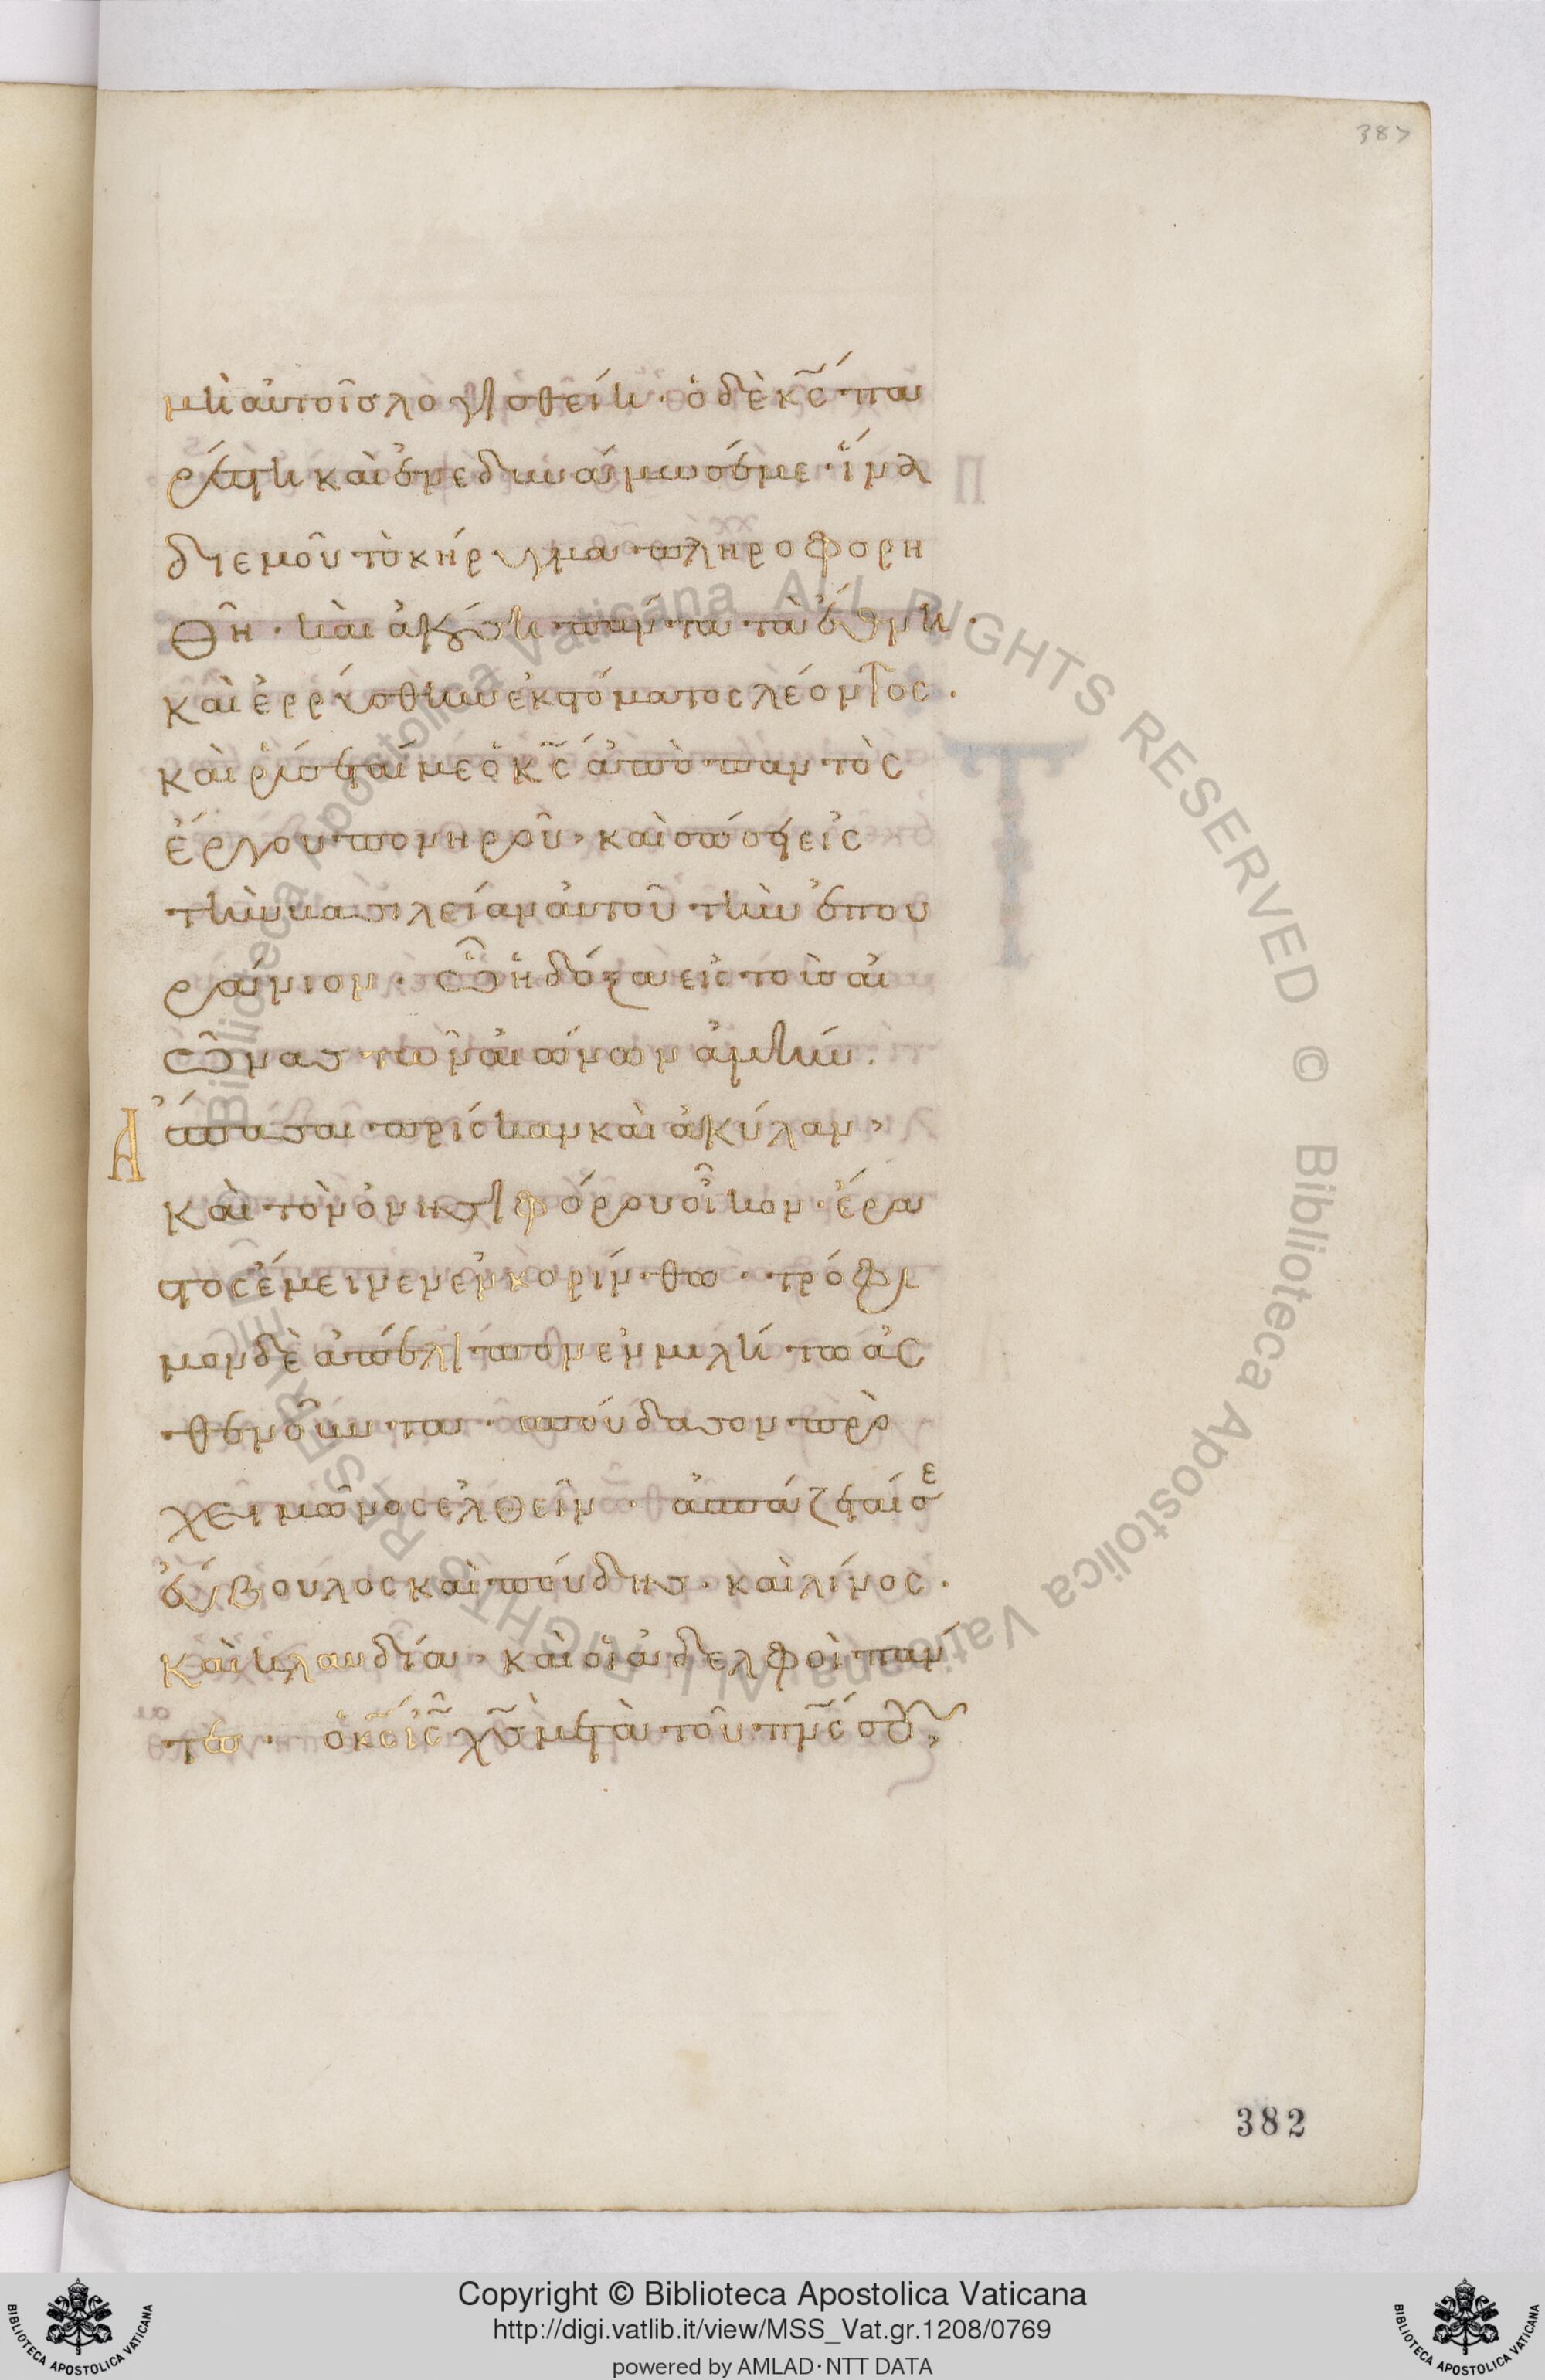 387
μὴ αὐτοῖς λογισθείη· ὁ δὲ κς̅ πα
ρέστη καὶ ἐνεδυνάμωσέ με· ἵνα
δι' ἐμοῦ τὸ κήρυγμα πληροφορη
θῆ· καὶ ἀκούση πάντα τὰ ἔθνη·
καὶ ἐρρύσθην ἐκ στόματος λέοντος·
καὶ ῥύσεταί με ὁ κς̅ ἀπὸ παντὸς
ἔργου πονηροῦ, καὶ σώσει εἰς
τὴν βασιλείαν αὐτοῦ τὴν ἐπου
ράνιον· ὧ ἡ δόξα εἰς τοὺς αἰ
ῶνας τῶν αἰώνων ἀμήν.
Ἄσπασαι πρίσκαν καὶ ἀκύλαν,
καὶ τὸν ὀνησιφόρου οἶκον· ἔρα
στος ἔμεινεν ἐν κορίνθω· τρόφι
μον δὲ ἀπέλιπον ἐν μιλήτω ἀσ
θενοῦντα· σπούδασον πρὸ
χειμῶνος ἐλθεῖν· ἀσπάζεταί σε
εὔβουλος καὶ πούδης· καὶ λίνος·
καὶ κλαυδία, καὶ οἱ ἀδελφοὶ πάν
τες· ὁ κς̅ ις̅ χς̅ μετὰ τοῦ πνς̅ σου,
382
Copyright © Biblioteca Apostolica Vaticana
http://digi.vatlib.it/view/MSS_Vat.gr.1208/0769
powered by AMLAD·NTT DATA
BIBLIOTECA APOSTOLICA VATICANA
BIBLIOTECA APOSTOLICA VATICANA
Biblioteca Apostolica Vaticana ALL RIGHTS RESERVED © Biblioteca Apostolica Vaticana ALL RIGHTS RESERVED ©